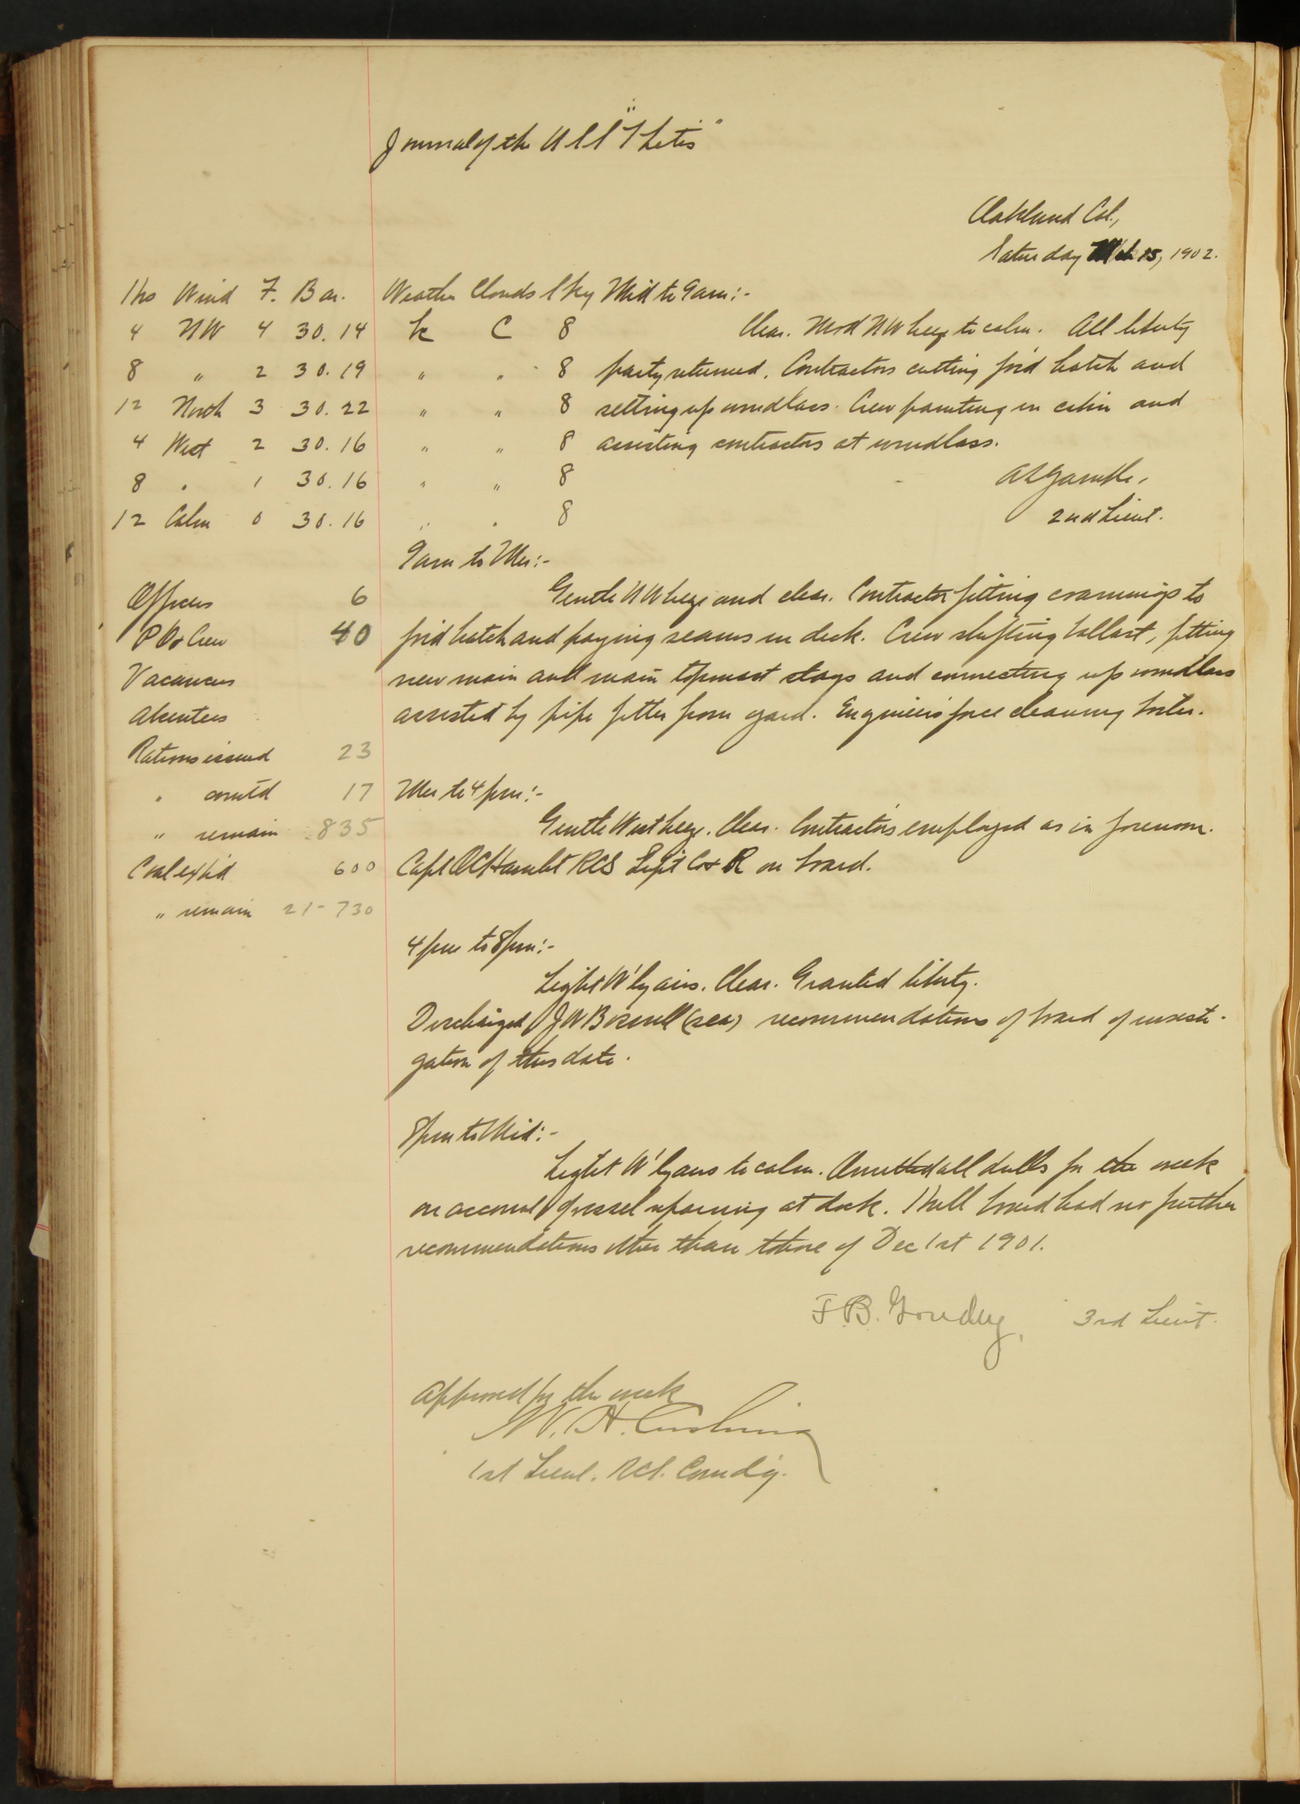 Journal of the U S S "Thetis"
Oakland Cal.,
Saturday Mch 15, 1902.
Hrs Wind F. Bar. Weather Clouds Sky Mid to 9am:-
4 NW 4 30.14 C 8 Clear. Mod NW breeze to calm. All liberty
8 " 2 30.19 " " 8 party returned. Contractors cutting for'd hatch and
12 North 3 30.22 " " 8 setting up windlass. Crew painting in cabin and
4 West 2 30.16 " " 8 assisting contractors at windlass.
8 " 1 30.16 " " 8 Gamble,
12 Calm 0 30.16 " " 8 2nd Lieut.
9am to Mer:-
Gentle NW breeze and clear. Contractor fitting coamings to
for'd hatch and paying seams in deck. Crew shifting ballast, fitting
new main and main topmast stays and connecting up windlass
assisted by pipe fitter from yard. Engineer's force cleaning boiler.
Officers 6
P Os & Crew 40
Vacancies
Absentees
Rations issued 23
" com'td 17
" remain 835
Coal exp'd 600
" remain 21-730
Mer to 4 pm:-
Gentle West breeze. Clear. Contractors employed as in forenoon.
Capt Hamlet RCS Sup't C & R on board.
4pm to 8pm:-
Light W'ly airs. Clear. Granted liberty.
Discharged J W (sea) recommendations of board of investi-
gation of this date.
8pm to Mid:-
Light W'ly airs to calm. Omitted all drills for the week
on account of vessel repairing at dock. Hull board had no further
recommendations other than those of Dec 1st 1901.
F.B. Goudey, 3rd Lieut.
Approved for the week
W. H. Cushing
1st Lieut. RCS. Comd'g.